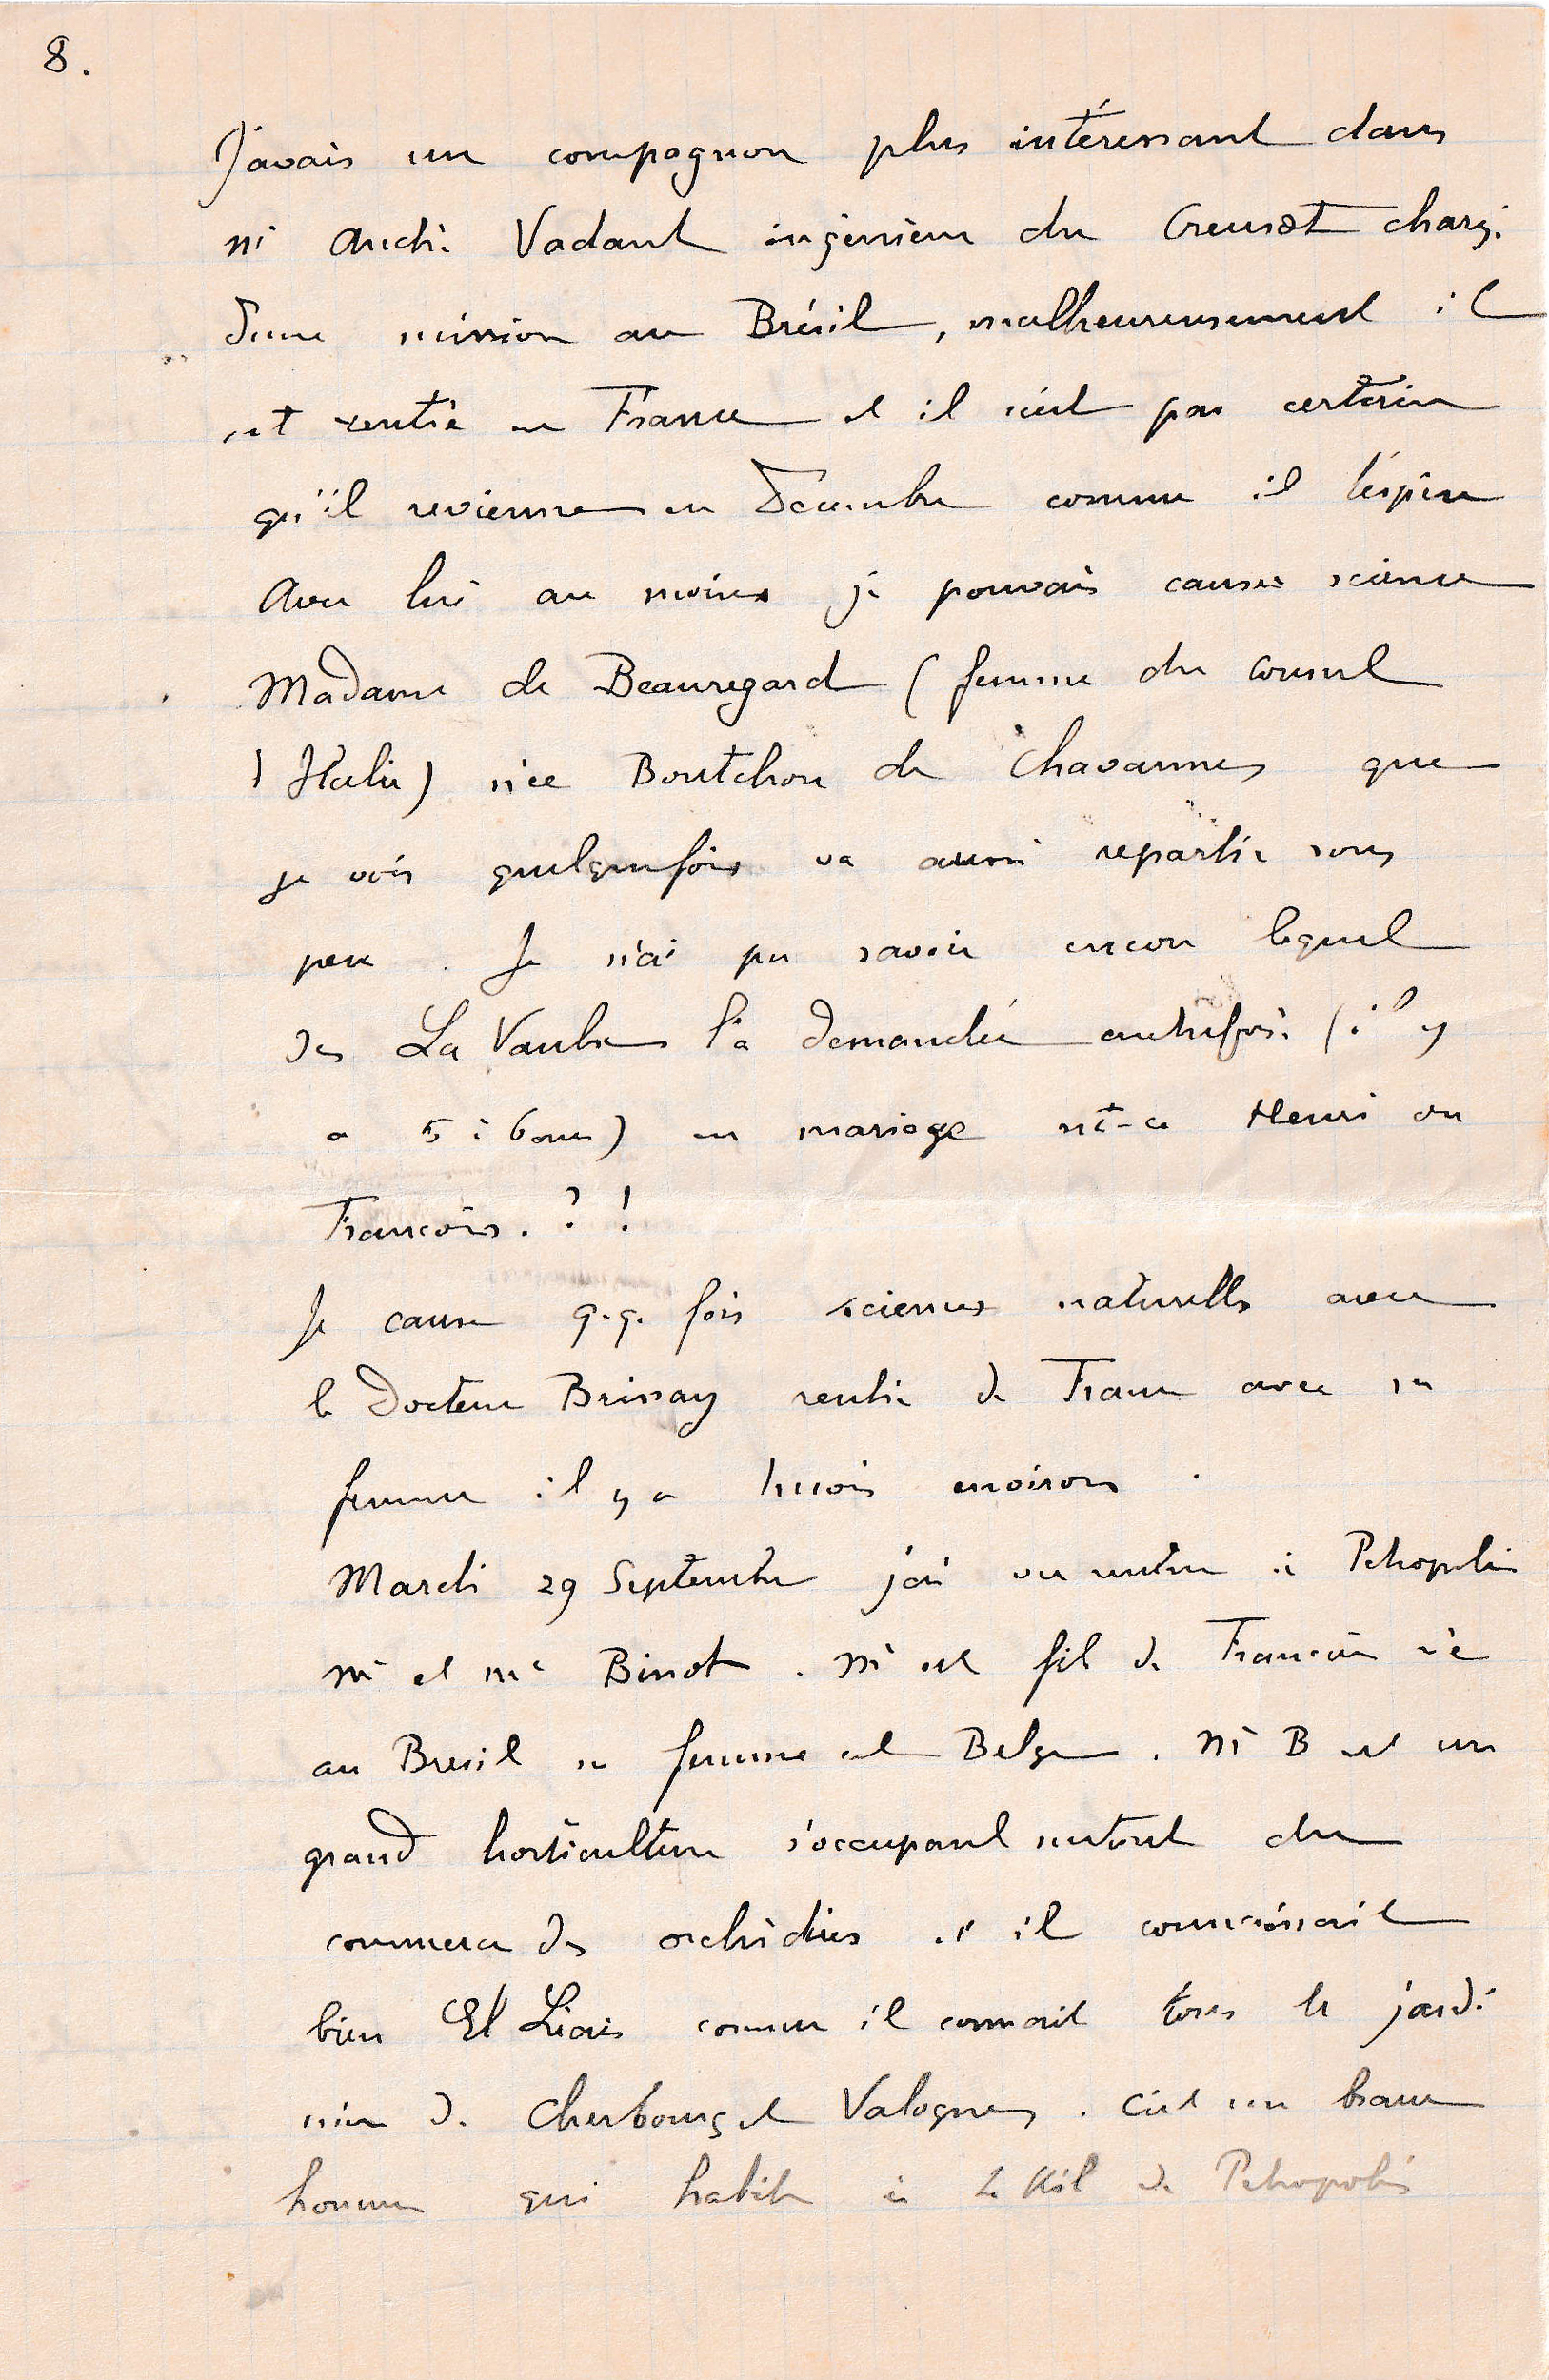 8.
J'avais un compagnon plus intéressant dans
Mr André Vadant ingénieur du Creusot chargé
d'une mission au Brésil, malheureusement il
est rentré en France et il n'est pas certain
qu'il revienne en Décembre comme il l'espère
Avec lui au moins je pouvais causer science
Madame de Beauregard (femme du consul
d'Italie) née Boutchon de Chavannes que
je vois quelquefois va aussi repartir sous
peu. Je n'ai pu savoir encore lequel
des La Vaulx l'a demandée autrefois (il y
a 5 à 6 ans) en mariage est-ce Henri ou
François. ? !
Je cause q.q. fois sciences naturelles avec
le Docteur Brissay rentré de France avec sa
femme il y a 1 mois environ.
Mardi 29 Septembre j'ai vu à Petropolis
Mr et Me Binot. Mr est fils de Français né
au Bresil sa femme est Belge. Mr B est un
grand horticulteur s'occupant surtout du
commerce des orchidées il connaissait
bien Et Liais comme il connait tous les jardi
niers de Cherbourg et Valognes. C'est un brave
homme qui habite à 2 Kil de Petropolis